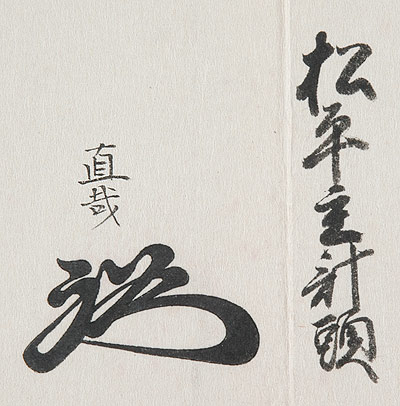 松平主計頭
直哉